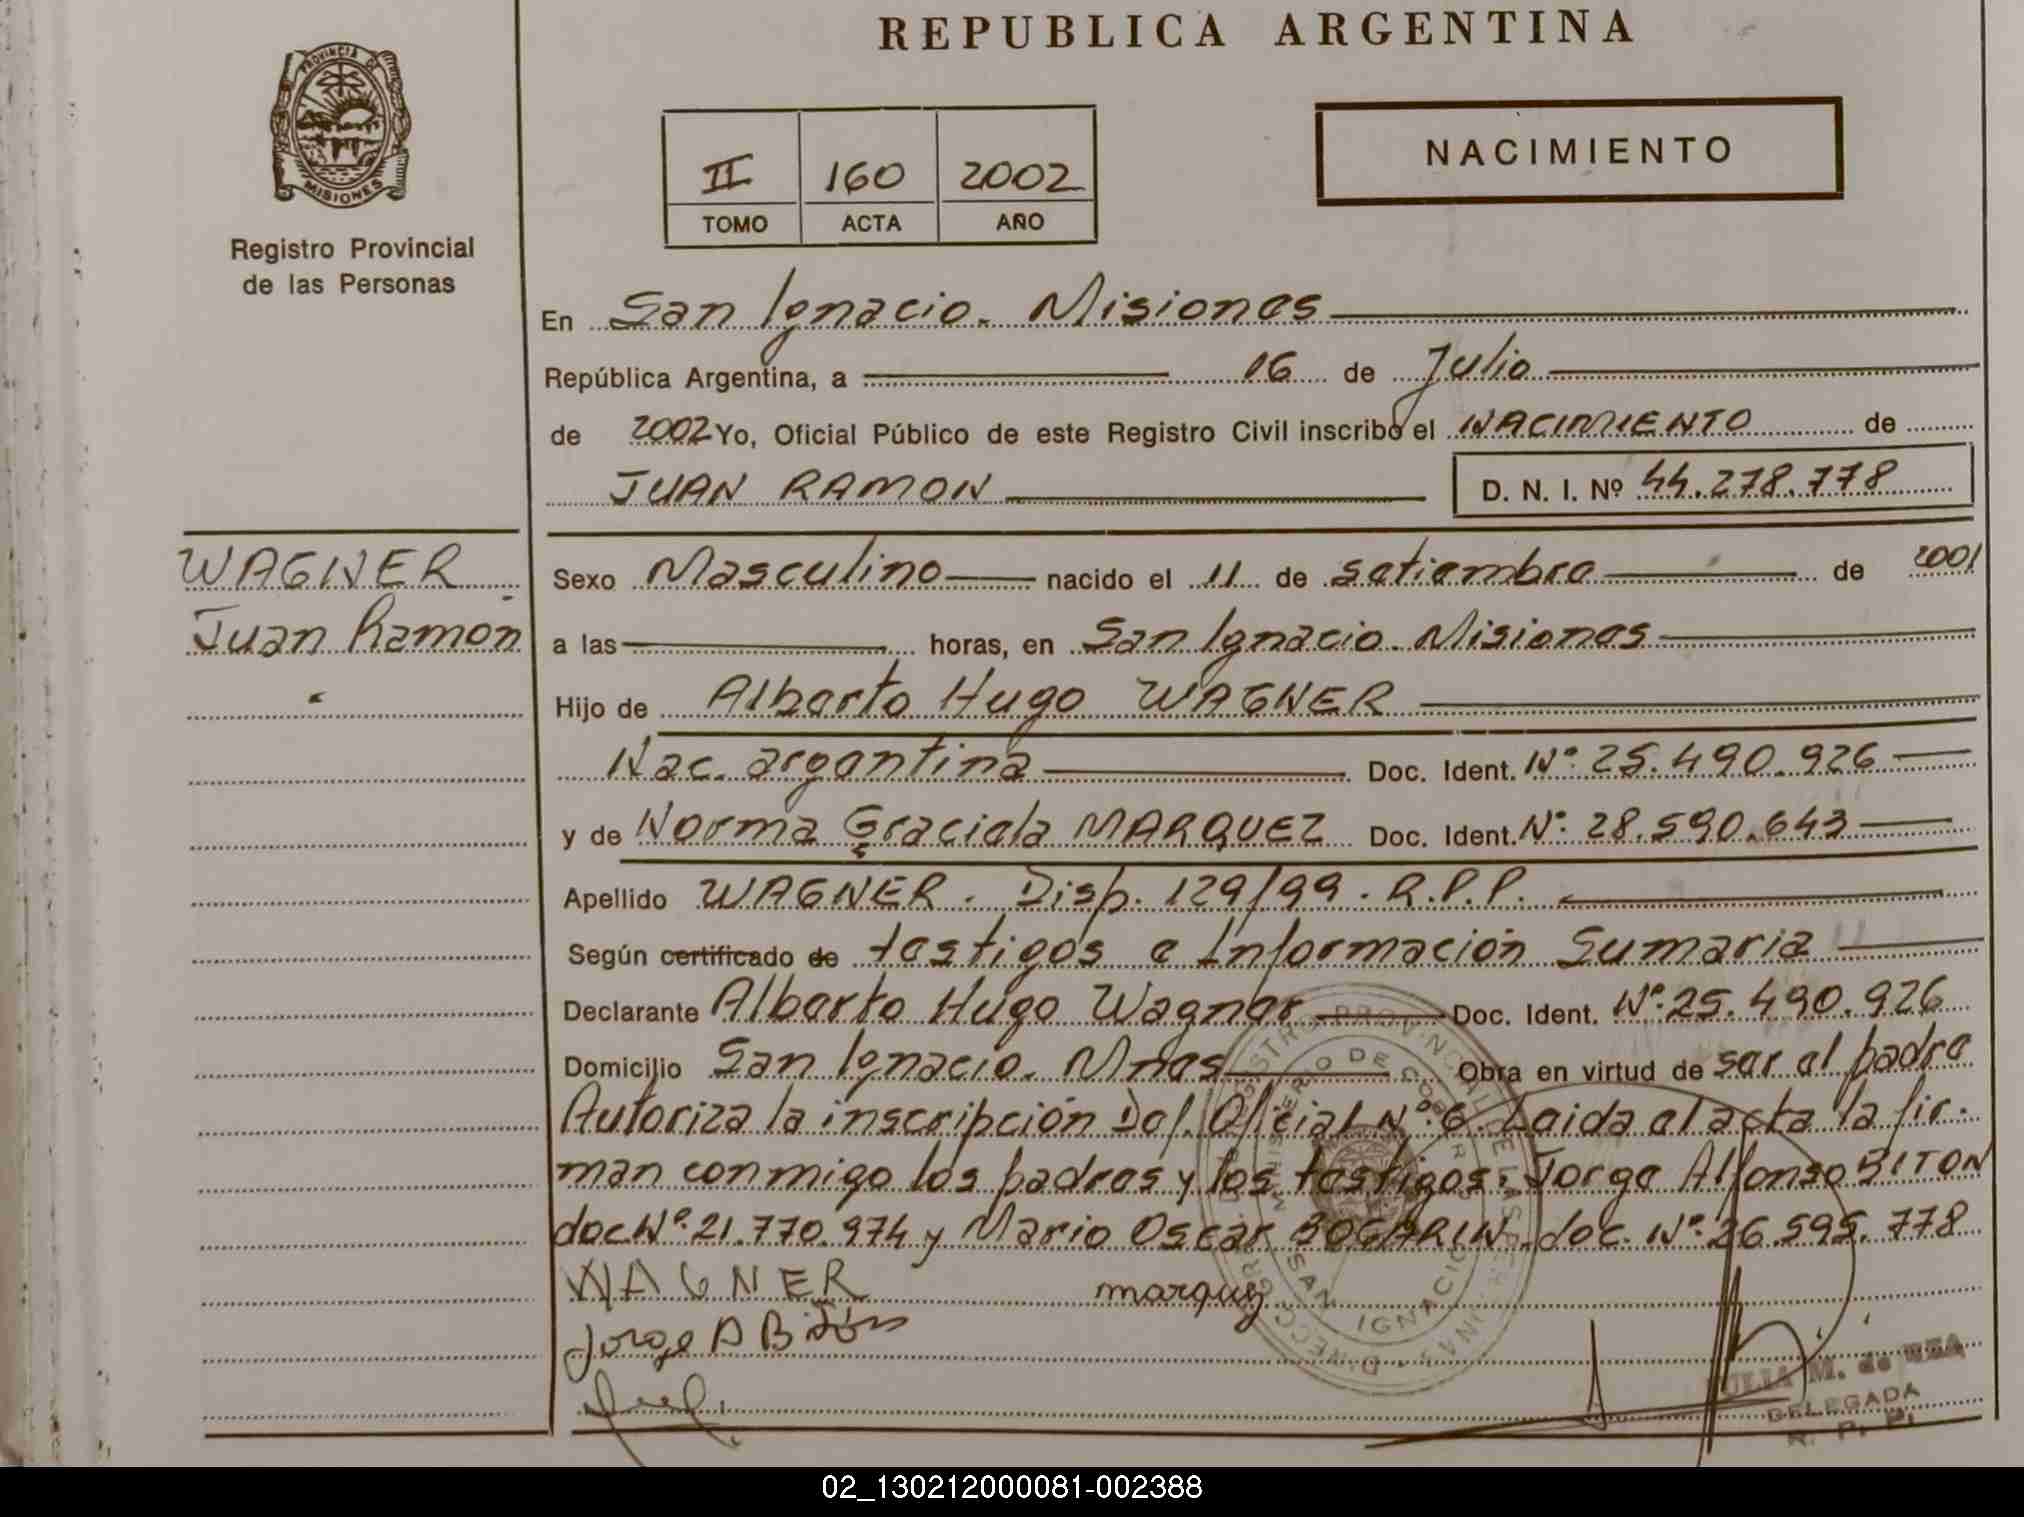 REPUBLICA ARGENTINA
PROVINCIA DE
MISIONES
Registro Provincial
de las Personas
II 160 2002
TOMO ACTA AÑO
NACIMIENTO
En San Ignacio. Misiones
República Argentina, a 16 de Julio
de 2002 Yo, Oficial Público de este Registro Civil inscribo el NACIMIENTO de
JUAN RAMON D. N. I. Nº 44.278.778
WAGNER
Juan Ramon
Sexo Masculino nacido el 11 de setiembre de 2001
a las horas, en San Ignacio. Misiones
Hijo de Alberto Hugo WAGNER
Nac. argentina Doc. Ident. Nº 25.490.926
y de Norma Graciela MARQUEZ Doc. Ident. Nº 28.590.643
Apellido WAGNER. Disp. 129/99. R.P.P.
Según certificado de testigos e Información Sumaria
Declarante Alberto Hugo Wagner Doc. Ident. Nº 25.490.926
Domicilio San Ignacio. Mnes Obra en virtud de ser el padre
Autoriza la inscripción Del. Oficial Nº 6. Leida el acta la fir-
man conmigo los padres y los testigos: Jorge Alfonso BITON
doc Nº 21.770.974 y Mario Oscar BOGARIN. doc. Nº 26.595.778
WAGNER marquez
Jorge A Bitón
SAN IGNACIO
JULIA M. de
DELEGADA
R. P. P.
02_130212000081-002388